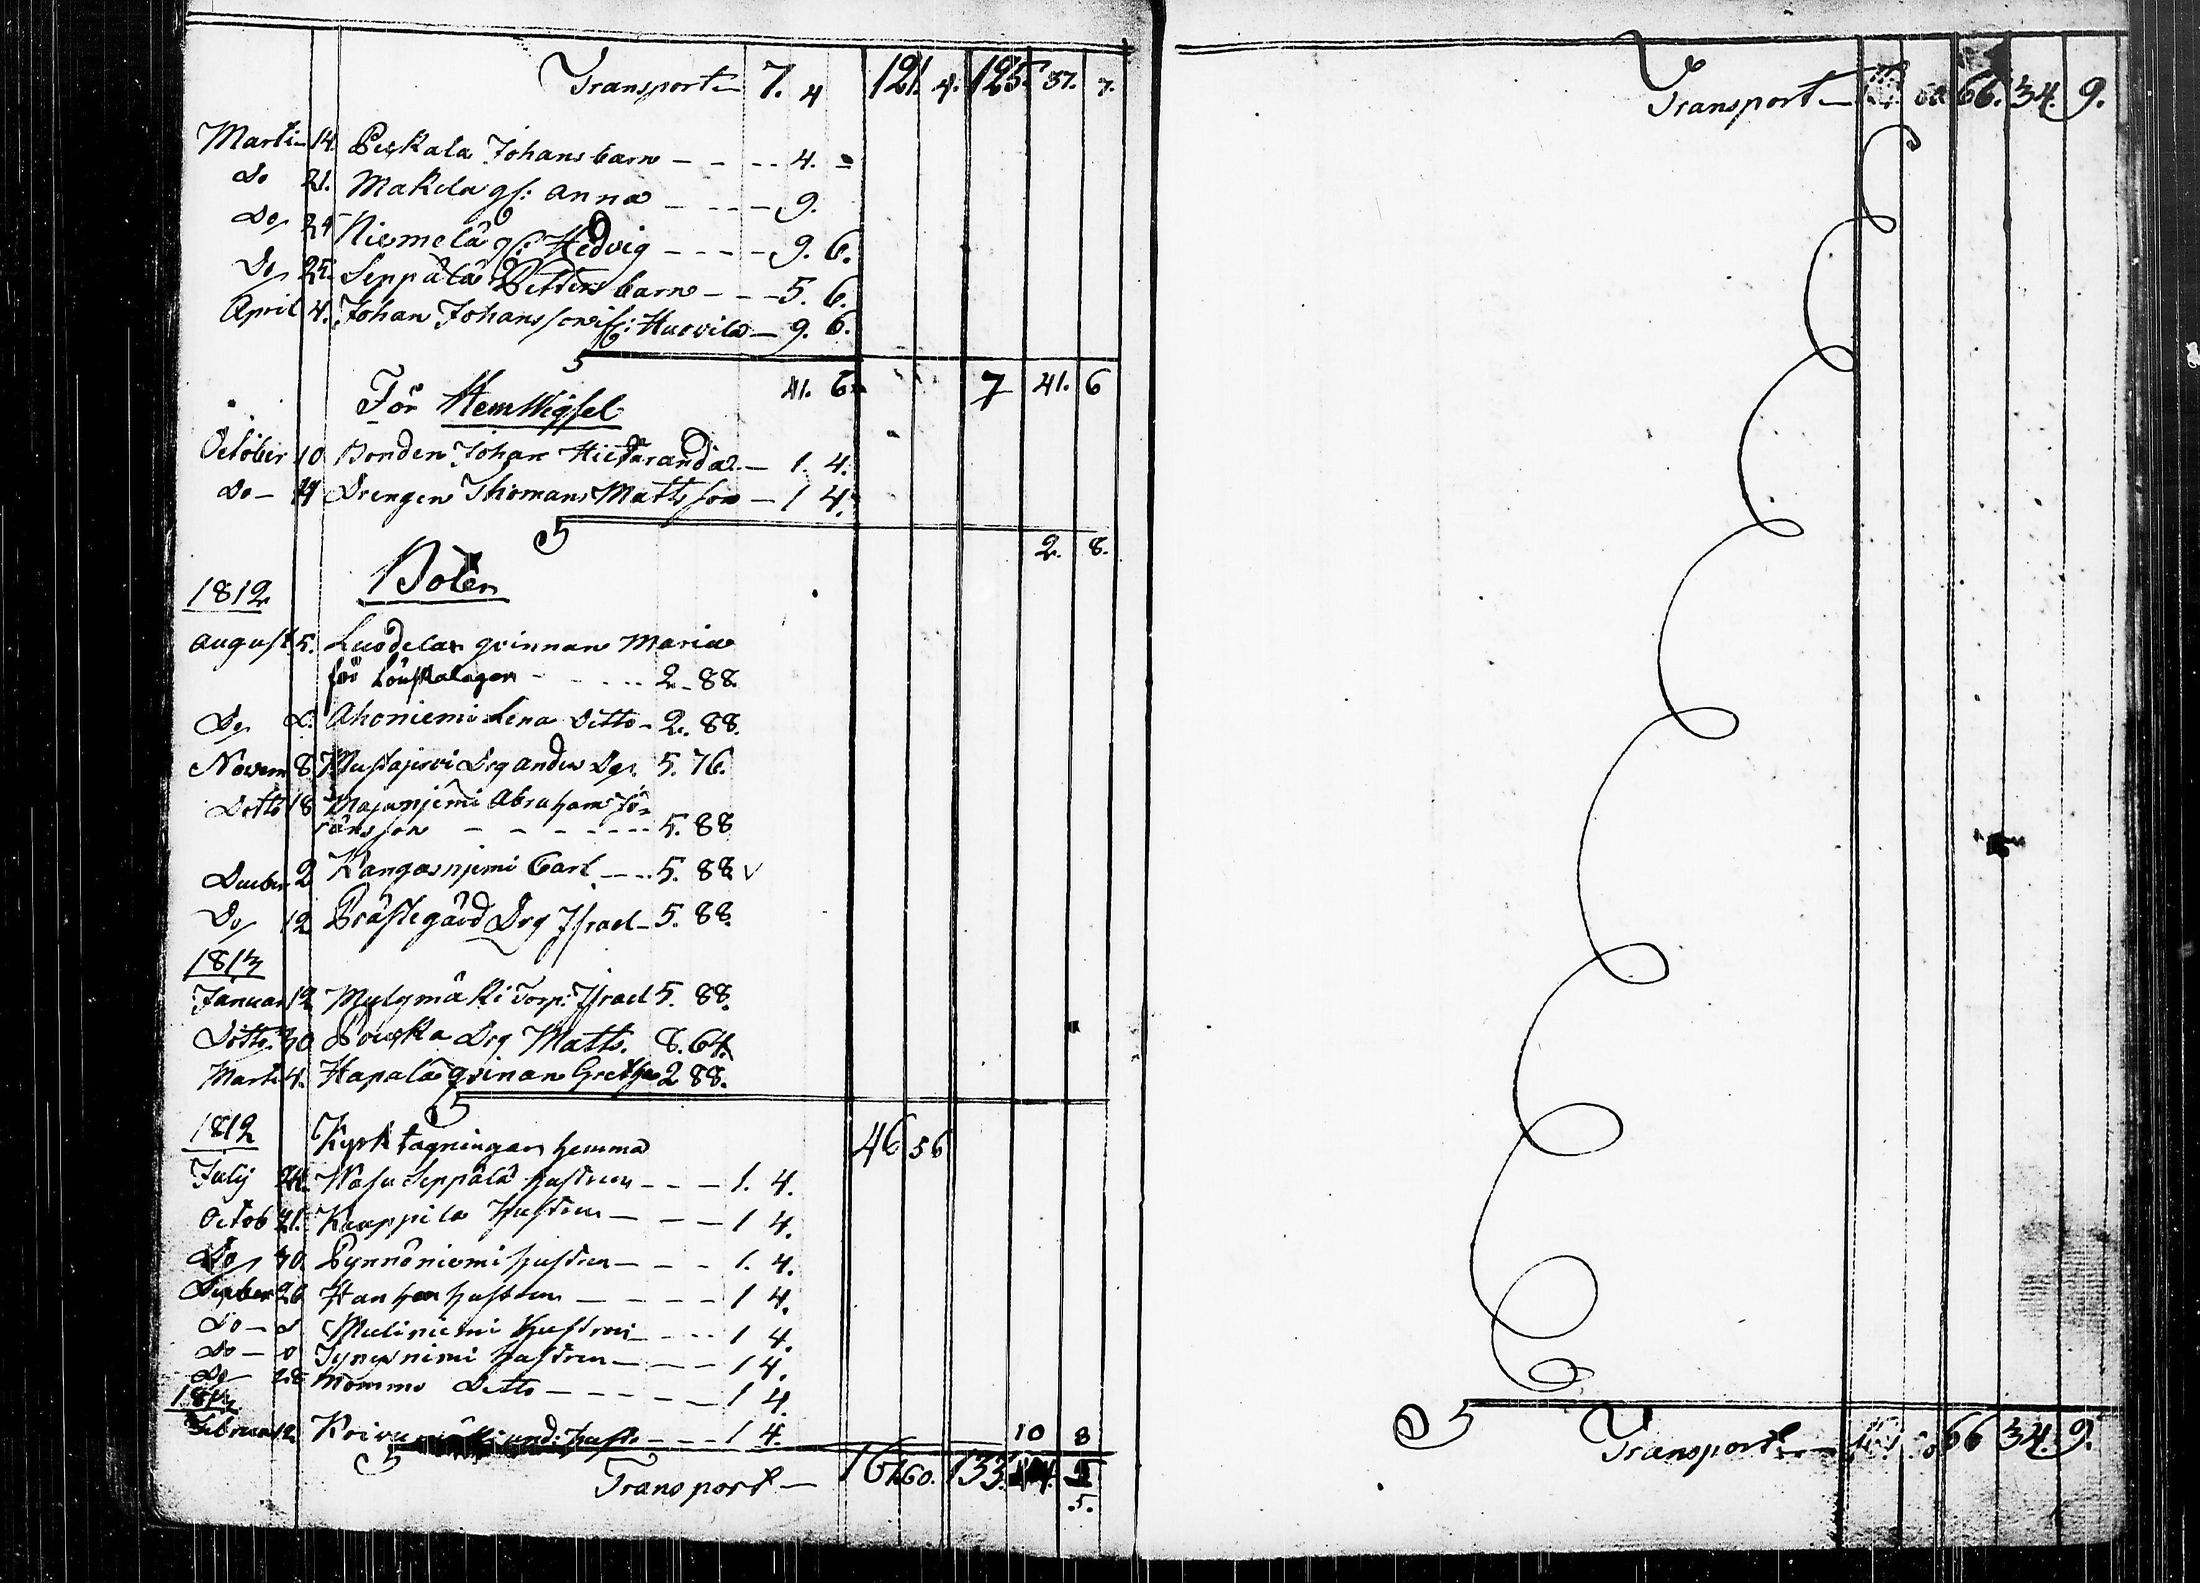 Transport — 7. 4 121. 4. 125. 37. 7.
Marti 14. Peskala Johans barn — 4. —
Do 21. Makela gs: Anna — 9.
Do 24 Niemelä gs: Hedvig — 9. 6.
Do 25. Seppälä Petters barn — 5. 6.
April 4. Johan Johansson is: Huovila — 9. 6.
41. 6 7 41. 6
För HemWigsel
October 10 Bonden Johan Hietaranda — 1. 4.
Do — Drengen Thomans Mattsson — 1 4.
2. 8.
Böter
1812
August 5. Luodelas qvinnan Maria
för Lönskalagen — 2 - 88.
Do D. Ahoniemi Lena Ditto — 2. 88.
Novem 8. Mustajervi Drg Anders Do. 5. 76.
Ditto 18 Majanjemi Abraham Jö-
ransson — 5. 88
Decber 2 Kangasnjemi Carl — 5. 88
Do 12 Prästegård Drg Israel — 5. 88.
1813
Januar 12 Mylymäki Torp: Israel 5. 88.
Ditto. 30 Pouska Drg Matts. 8. 64.
Marti 4. Hapala qvinan Gretha 2 88.
1812 Kyrktagningar hemma 46 56
July 24. Wasu Seppälä hustrun — 1. 4.
Octob 21. Kauppila hustrun — 1 4.
Do 30. Pynnöniemi hustrun — 1. 4.
26 Hanhen hustrun — 1 4.
Do — Do hustrun — 1 4.
Do — Do hustrun — 1 4.
Do 28 Mommo Ditto — 1 4.
Februar 12 — 1 4. 10 8
Transport — 167 60. 133. 5.
Transport — 66. 34. 9.
Transport — 66 34. 9.